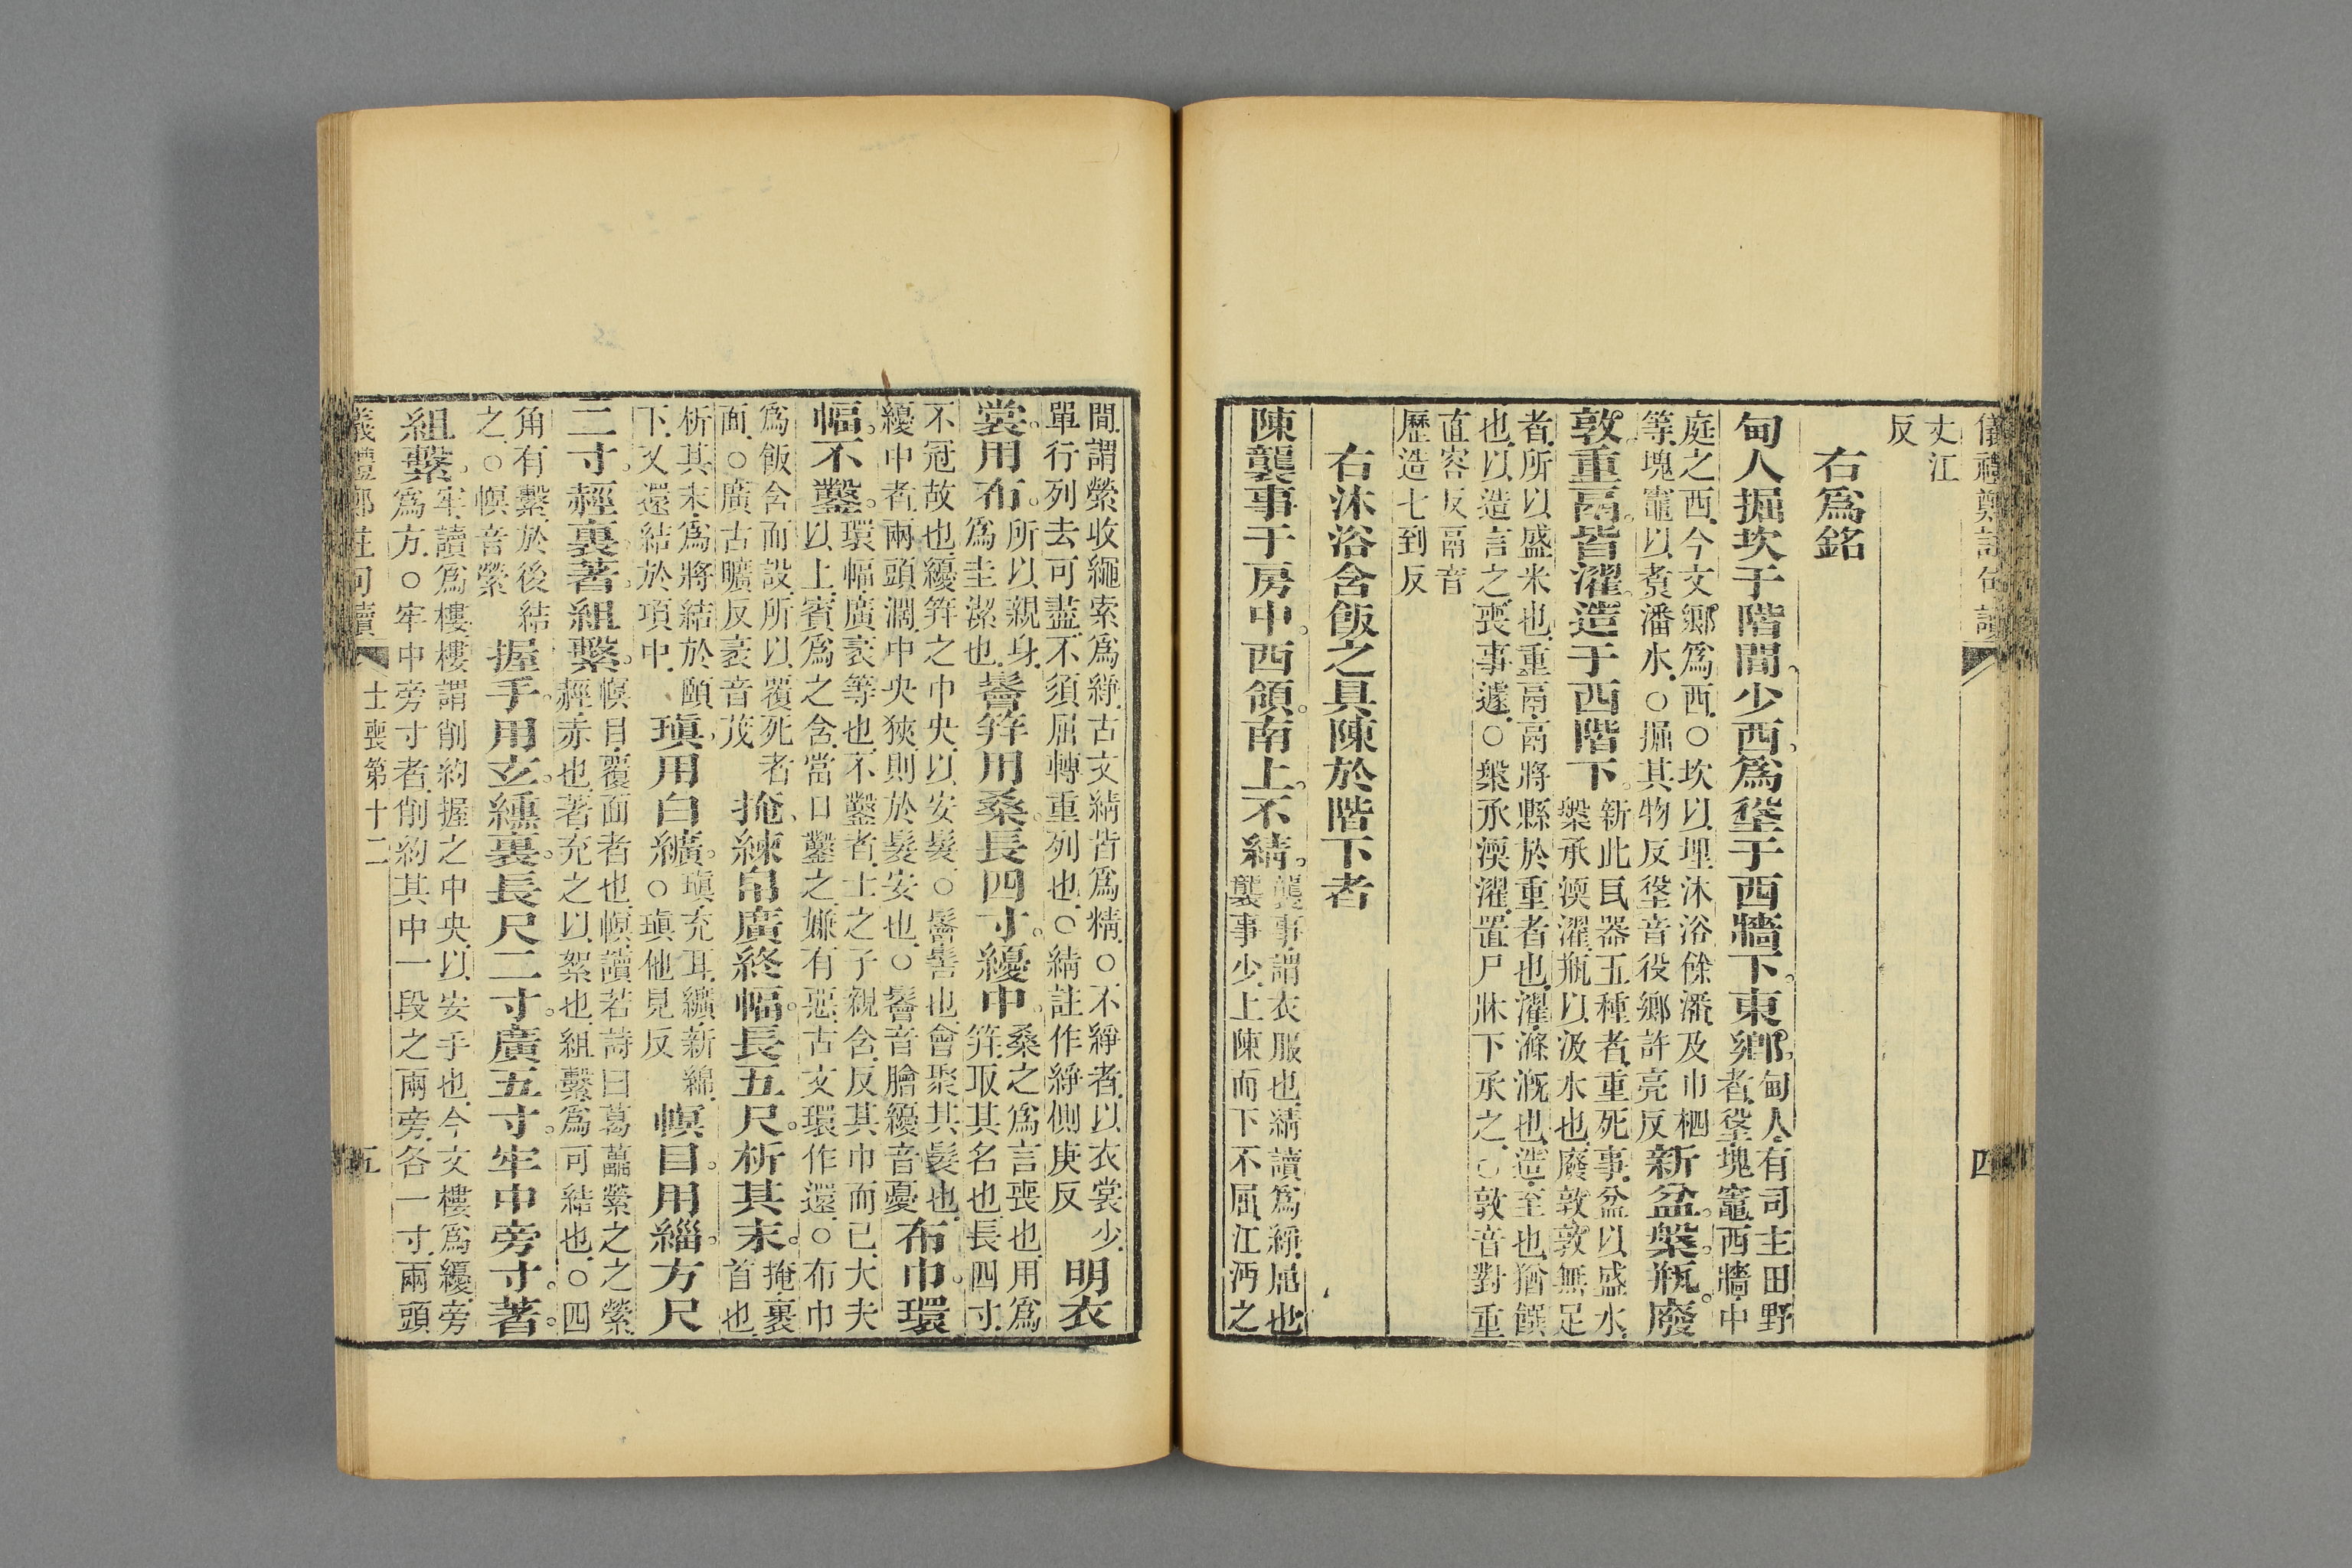 儀禮鄭註句讀
四
丈江
反
右爲銘
甸人掘坎于階間少西爲垼于西牆下東鄉甸人有司主田野
者垼塊竈西牆中
庭之西今文鄉爲西○坎以埋沐浴餘潘及巾柶
等塊竈以煑潘水○掘其物反垼音役鄉許亮反新盆槃瓶廢
敦重鬲皆濯造于西階下新此瓦器五種者重死事盆以盛水
槃承渜濯瓶以汲水也廢敦敦無足
者所以盛米也重鬲鬲將縣於重者也濯滌溉也造至也猶饌
也以造言之喪事遽○槃承渜濯置尸牀下承之○敦音對重
直容反鬲音
歷造七到反
右沐浴含飯之具陳於階下者
陳襲事于房中西領南上不綪襲事謂衣服也綪讀爲絣屈也
襲事少上陳而下不屈江沔之
間謂縈收繩索爲絣古文綪皆爲精○不絣者以衣裳少
單行列去可盡不須屈轉重列也○綪註作絣側庚反明衣
裳用布所以親身
爲圭潔也鬠笄用桑長四寸纋中桑之爲言喪也用爲
笄取其名也長四寸
不冠故也纋笄之中央以安髮○鬠髻也會聚其髮也
纋中者兩頭濶中央狹則於髮安也○鬠音膾纋音憂布巾環
幅不鑿環幅廣袤等也不鑿者士之子親含反其巾而已大夫
以上賓爲之含當口鑿之嫌有惡古文環作還○布巾
爲飯含而設所以覆死者
面○廣古曠反袤音茂掩練帛廣終幅長五尺析其末掩裹
首也
析其末爲將結於頤
下又還結於項中瑱用白纊瑱充耳纊新綿
○瑱他見反幎目用緇方尺
二寸䞓裏著組繫幎目覆面者也幎讀若詩曰葛藟縈之之縈
䞓赤也著充之以絮也組繫爲可結也○四
角有繫於後結
之○幎音縈握手用玄纁裏長尺二寸廣五寸牢中旁寸著
組繫牢讀爲樓樓謂削約握之中央以安手也今文樓爲纋旁
爲方○牢中旁寸者削約其中一段之兩旁各一寸兩頭
儀禮鄭註句讀
士喪第十二
五